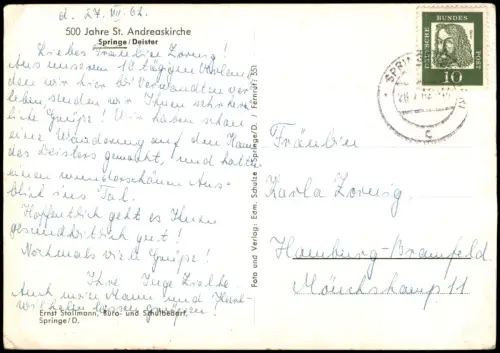 d. 27. VII. 62.
500 Jahre St. Andreaskirche
Springe/Deister
Liebes Fräulein Zornig!
Aus unserem 10 tägigen Urlaub
den wir hier bei Verwandten ver
leben senden wir Ihnen sehr herz
liche Grüße! Wir haben schon
eine Wanderung auf dem Kamm
des Deisters gemacht, und hatten
einen wunderschönen Aus-
blick ins Tal.
Hoffentlich geht es Ihnen
gesundheitlich gut!
Nochmals viele Grüße!
Ihre Inge
Auch mein Mann und Karl-
wilhelm lassen grüßen!
Ernst Stallmann, Büro- und Schulbedarf,
Springe/D.
Foto und Verlag: Edm. Schulze Springe/D. / Fernruf: 551
DEUTSCHE BUNDES POST
10
SPRINGE
c
Fräulein
Karla Zornig
Hamburg-Bramfeld
Mönchskamp 11